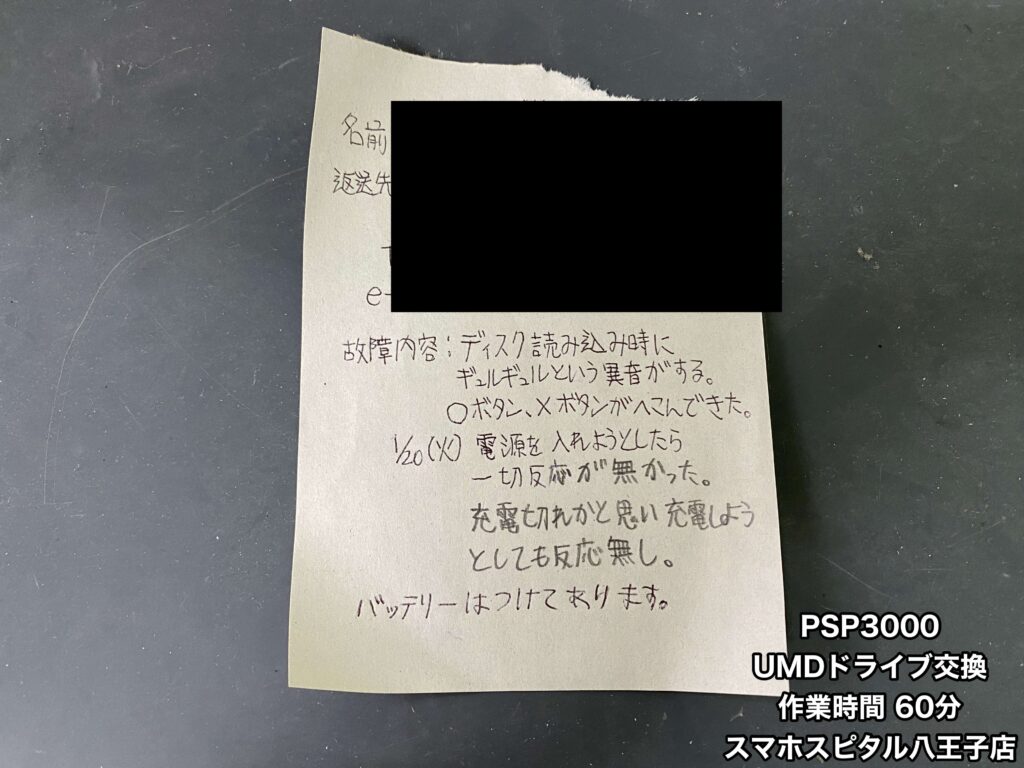 名前
返送先
e-
故障内容：ディスク読み込み時に
ギュルギュルという異音がする。
○ボタン、×ボタンがへこんできた。
1/20(火) 電源を入れようとしたら
一切反応が無かった。
充電切れかと思い充電しよう
としても反応無し。
バッテリーはつけてあります。
PSP3000
UMDドライブ交換
作業時間 60分
スマホスピタル八王子店